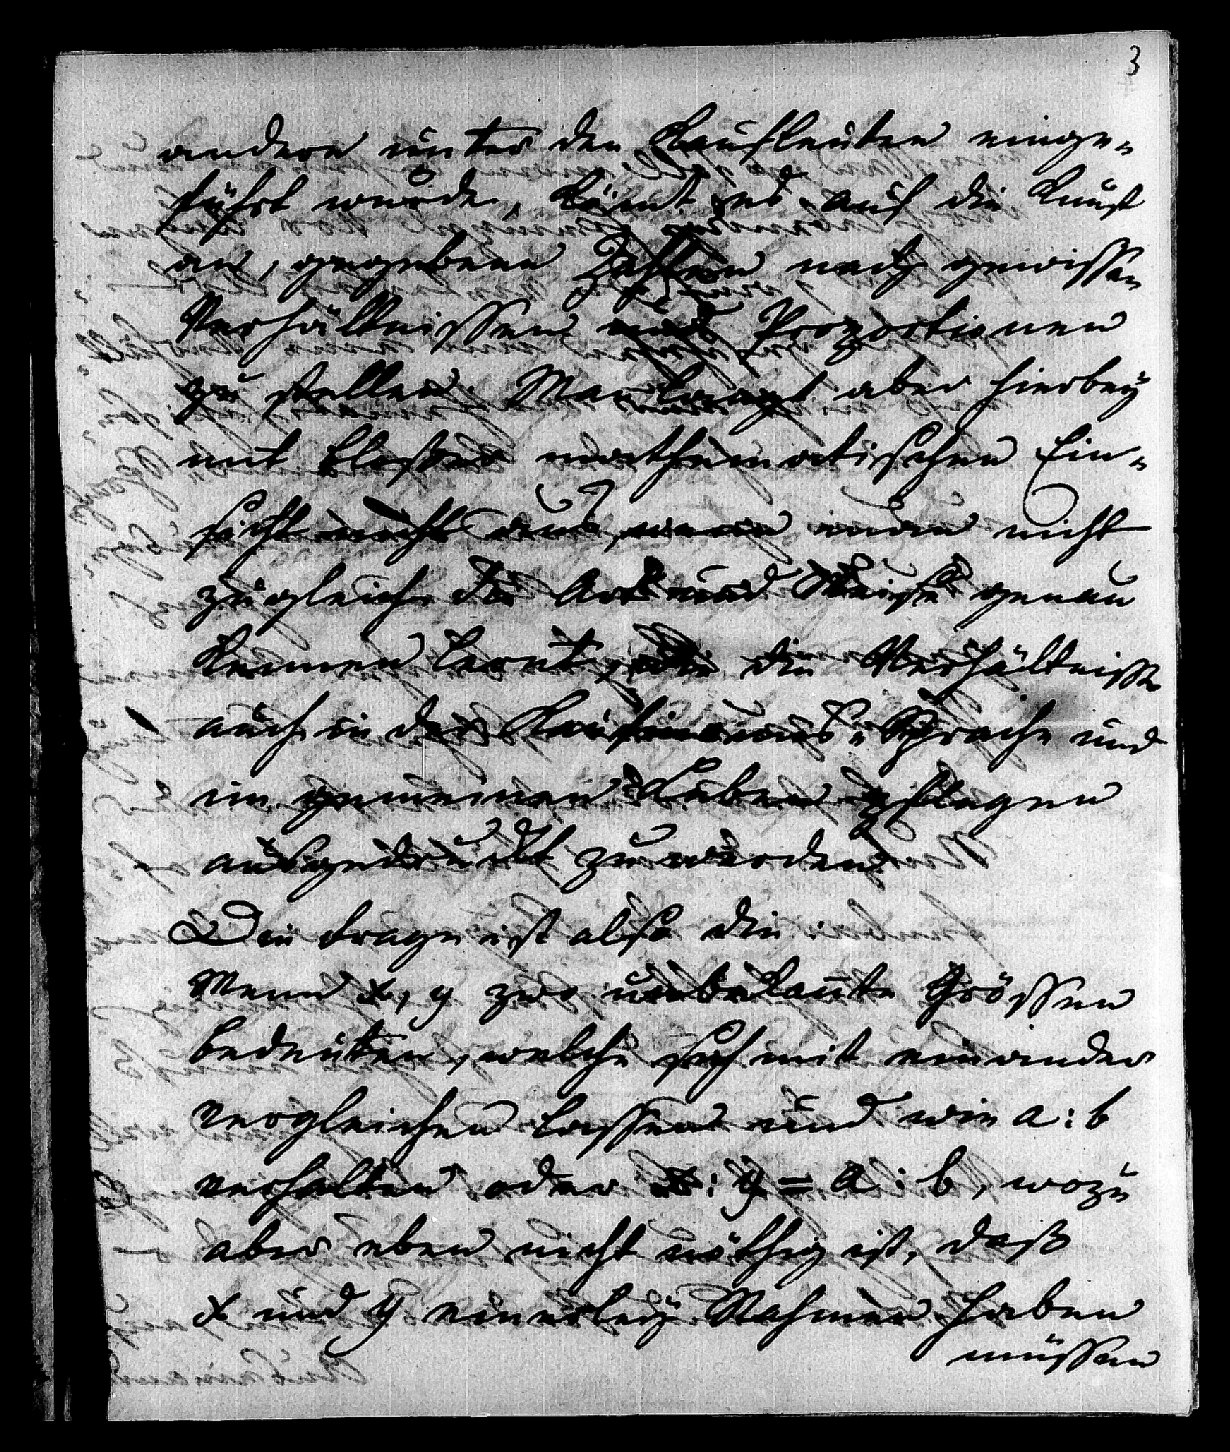 3
andere unter den Kaufleuten einge-
führt wurde, kömt es auf die Kunst
an, gegebene Zahlen nach gewissen
Verhältnissen und Proportionen
zu stellen. Man langt aber hierbey
mit blosser mathematischen Ein-
sicht nicht aus, wenn man nicht
zugleich die Art und Weise genau
kennen lernt, wie die Verhältnisse
auch in der Kaufmanns-Sprache und
im gemeinen Leben pflegen
ausgedruckt zu werden.
Die Frage ist also die
Wenn x, y zwo unbekante Grössen
bedeuten, welche sich mit einander
vergleichen lassen und wie a : b
verhalten oder x : y = a : b, wozu
aber eben nicht nöthig ist, daß
x und y einerley Nahmen haben
müssen